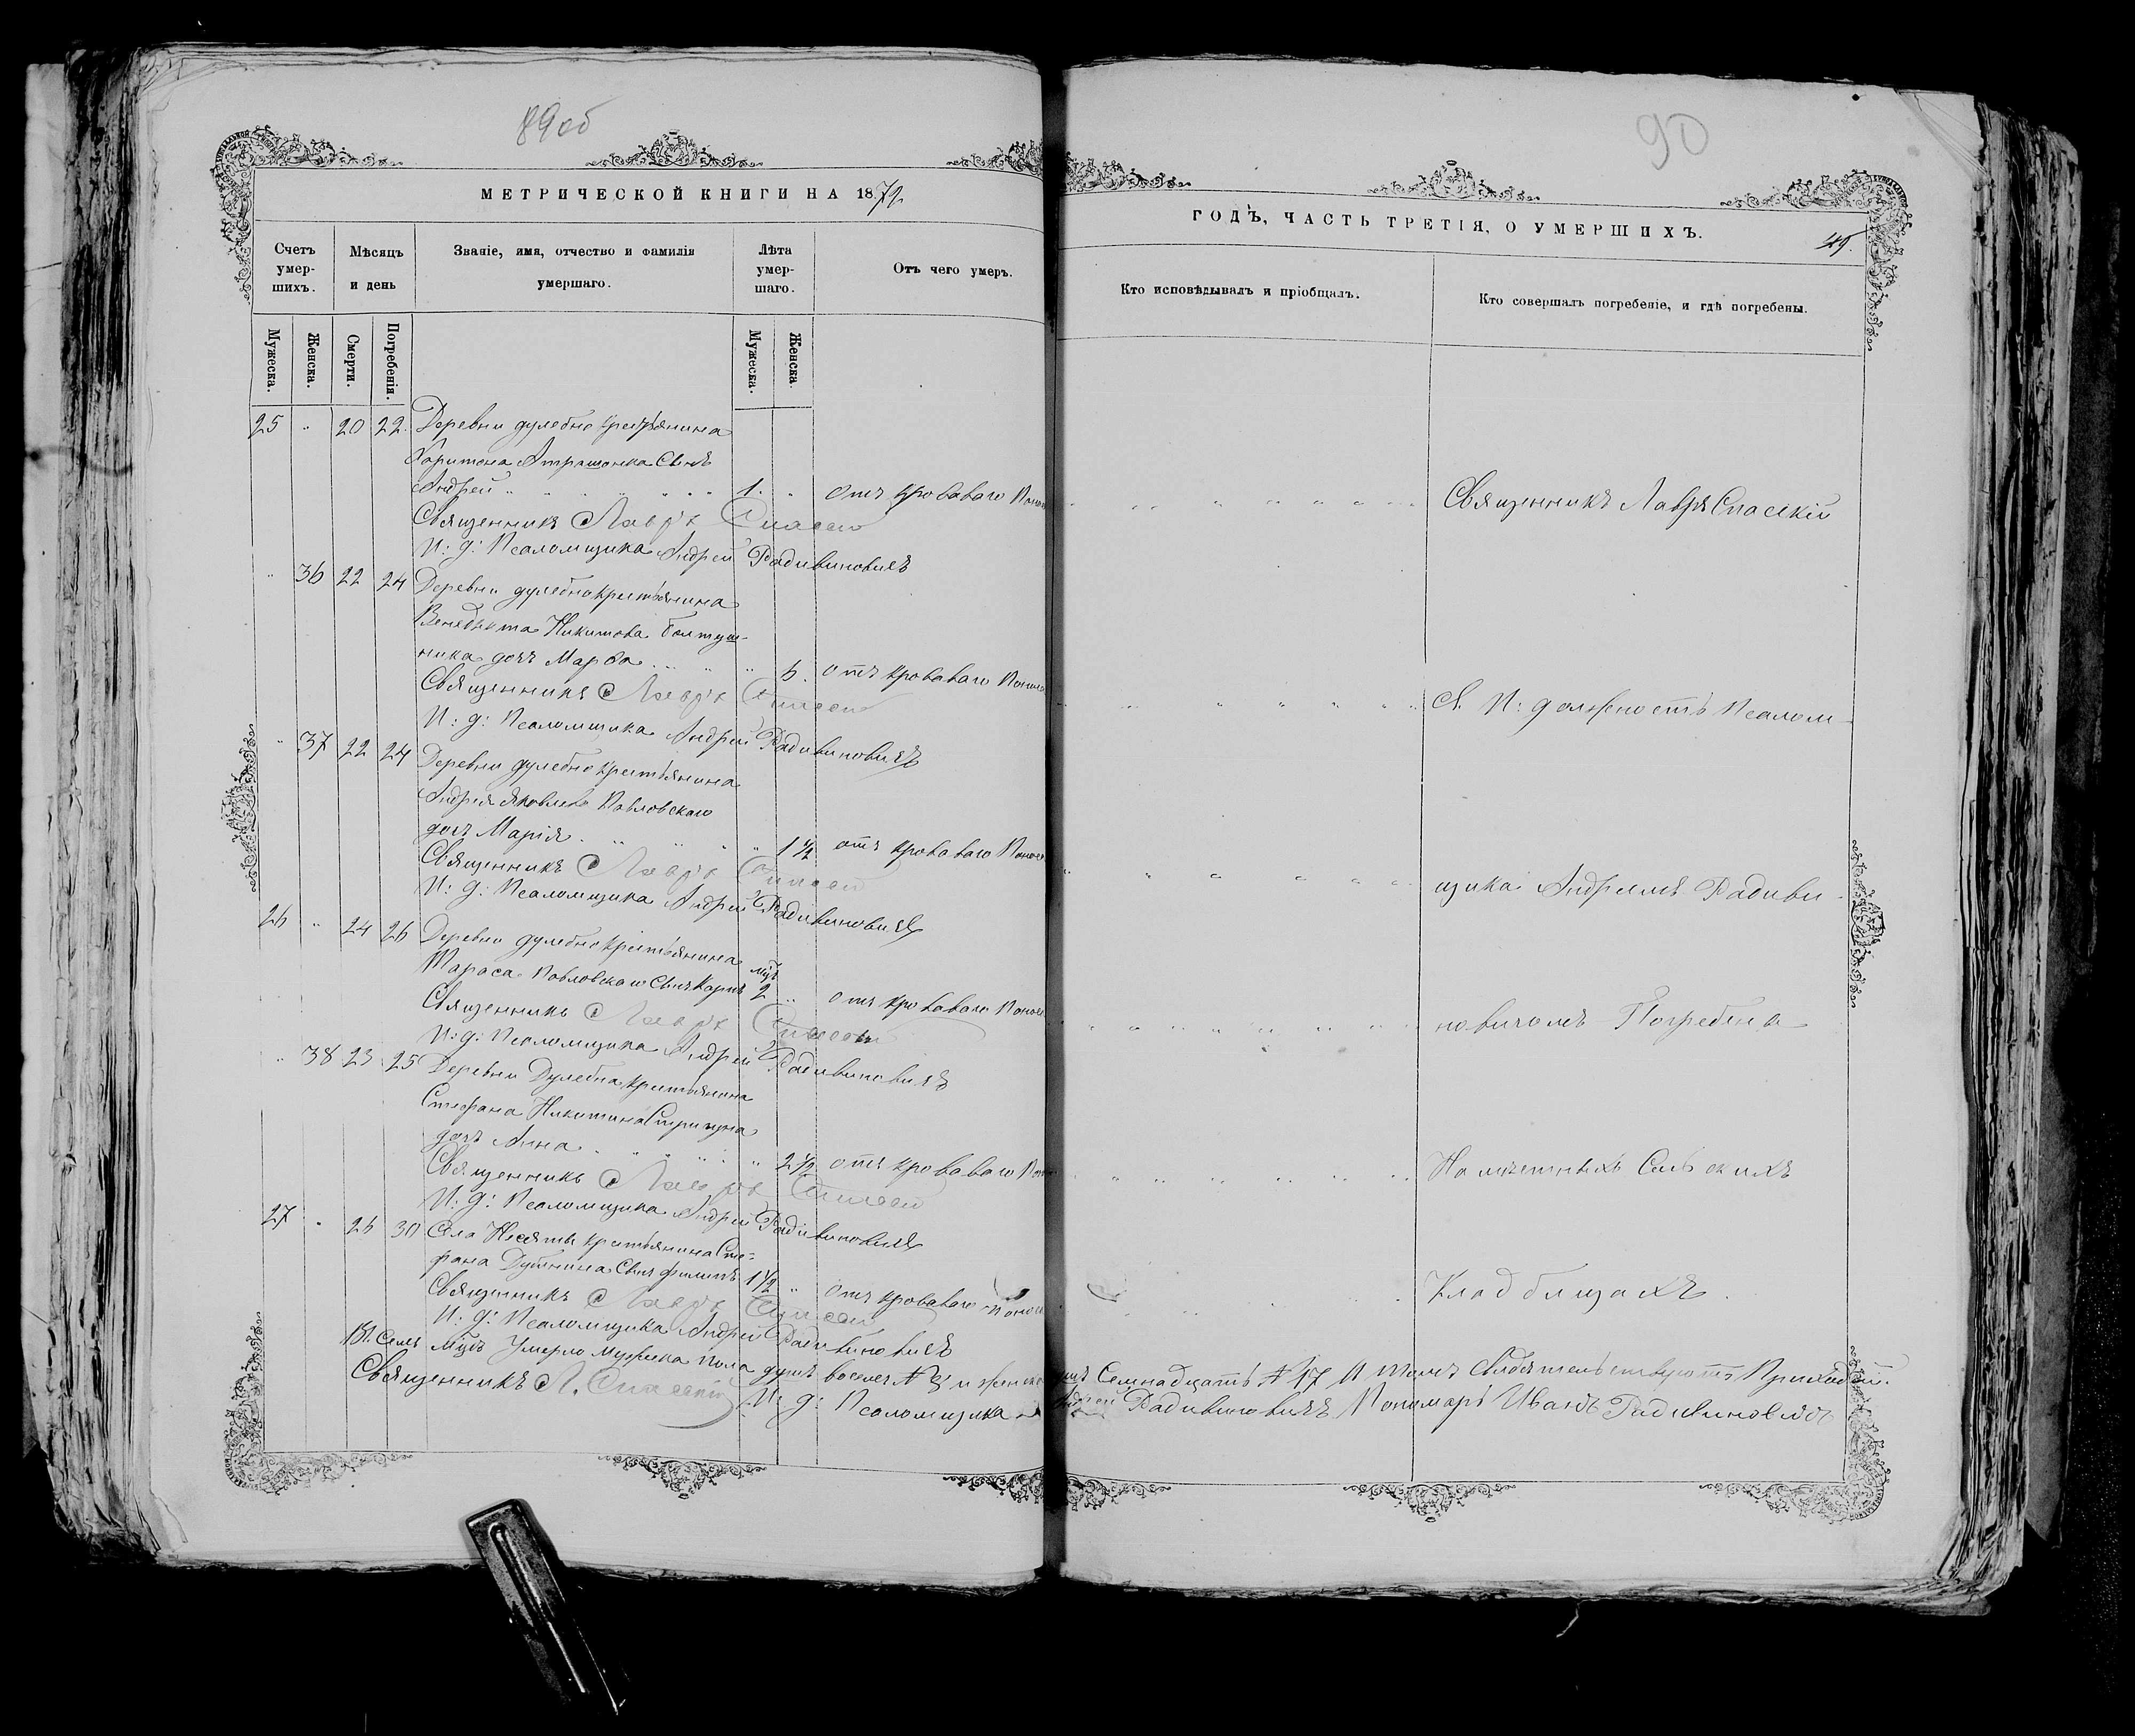 89об
МЕТРИЧЕСКОЙ КНИГИ НА 1872
Счетъ умер-шихъ.
Мѣсяцъ и день
Званіе, имя, отчество и фамилія умершаго.
Лѣта умер-шаго.
Отъ чего умеръ.
Мужеска.
Женска.
Смерти.
Погребенія.
Мужеска.
Женска.
25 " 20 22 Деревни дулебно крестьянина
Харитона Атрашонка Сынъ
Андрей 1. " отъ кроваваго
Священникъ Лавръ Спасскій
И: д: Псаломщика Андрей Радивиновичъ
" 36 22 24 Деревни дулебно крестьянина
Венедыкта Никитова Болтуш-
ника дочь Марфа " 6. отъ кроваваго
Священникъ Лавръ Спасскій
И: д: Псаломщика Андрей Радивиновичъ
" 37 22 24 Деревни дулебно крестьянина
Андрея Яковлева Павловскаго
дочь Марія " 1 1/2 отъ кроваваго
Священникъ Лавръ Спасскій
И: д: Псаломщика Андрей Радивиновичъ
26 " 24 26 Деревни дулебно крестьянина
Тараса Павловскаго Сынъ Карпъ 2 " отъ кроваваго
Священникъ Лавръ Спасскій
И: д: Псаломщика Андрей Радивиновичъ
" 38 23 25 Деревни Дулебна крестьянина
Стефана Никитина
дочь Анна " 2 1/2 отъ кроваваго
Священникъ Лавръ Спасскій
И: д: Псаломщика Андрей Радивиновичъ
27 " 26 30 Села Несяты крестьянина Сте-
фана Сынъ Филипъ 1 1/2 " отъ кроваваго
Священникъ Лавръ Спасскій
И: д: Псаломщика Андрей Радивиновичъ
Умерло мужеска пола душъ и женска
Священникъ Л. Спасскій И: д: Псаломщика
90
ГОДЪ, ЧАСТЬ ТРЕТІЯ, О УМЕРШИХЪ.
49.
Кто исповѣдывалъ и пріобщалъ.
Кто совершалъ погребеніе, и гдѣ погребены.
Священникъ Лавръ Спасскій
С. И: должность Псалом-
щика Андреемъ Радиви-
новичомъ Погребена
На мѣстныхъ Сельскихъ
Кладбищахъ.
Семнадцать № 17 А томъ свидѣтельствуютъ Приходск.
Андрей Радивиновичъ Пономарь Иванъ Радивиновичъ